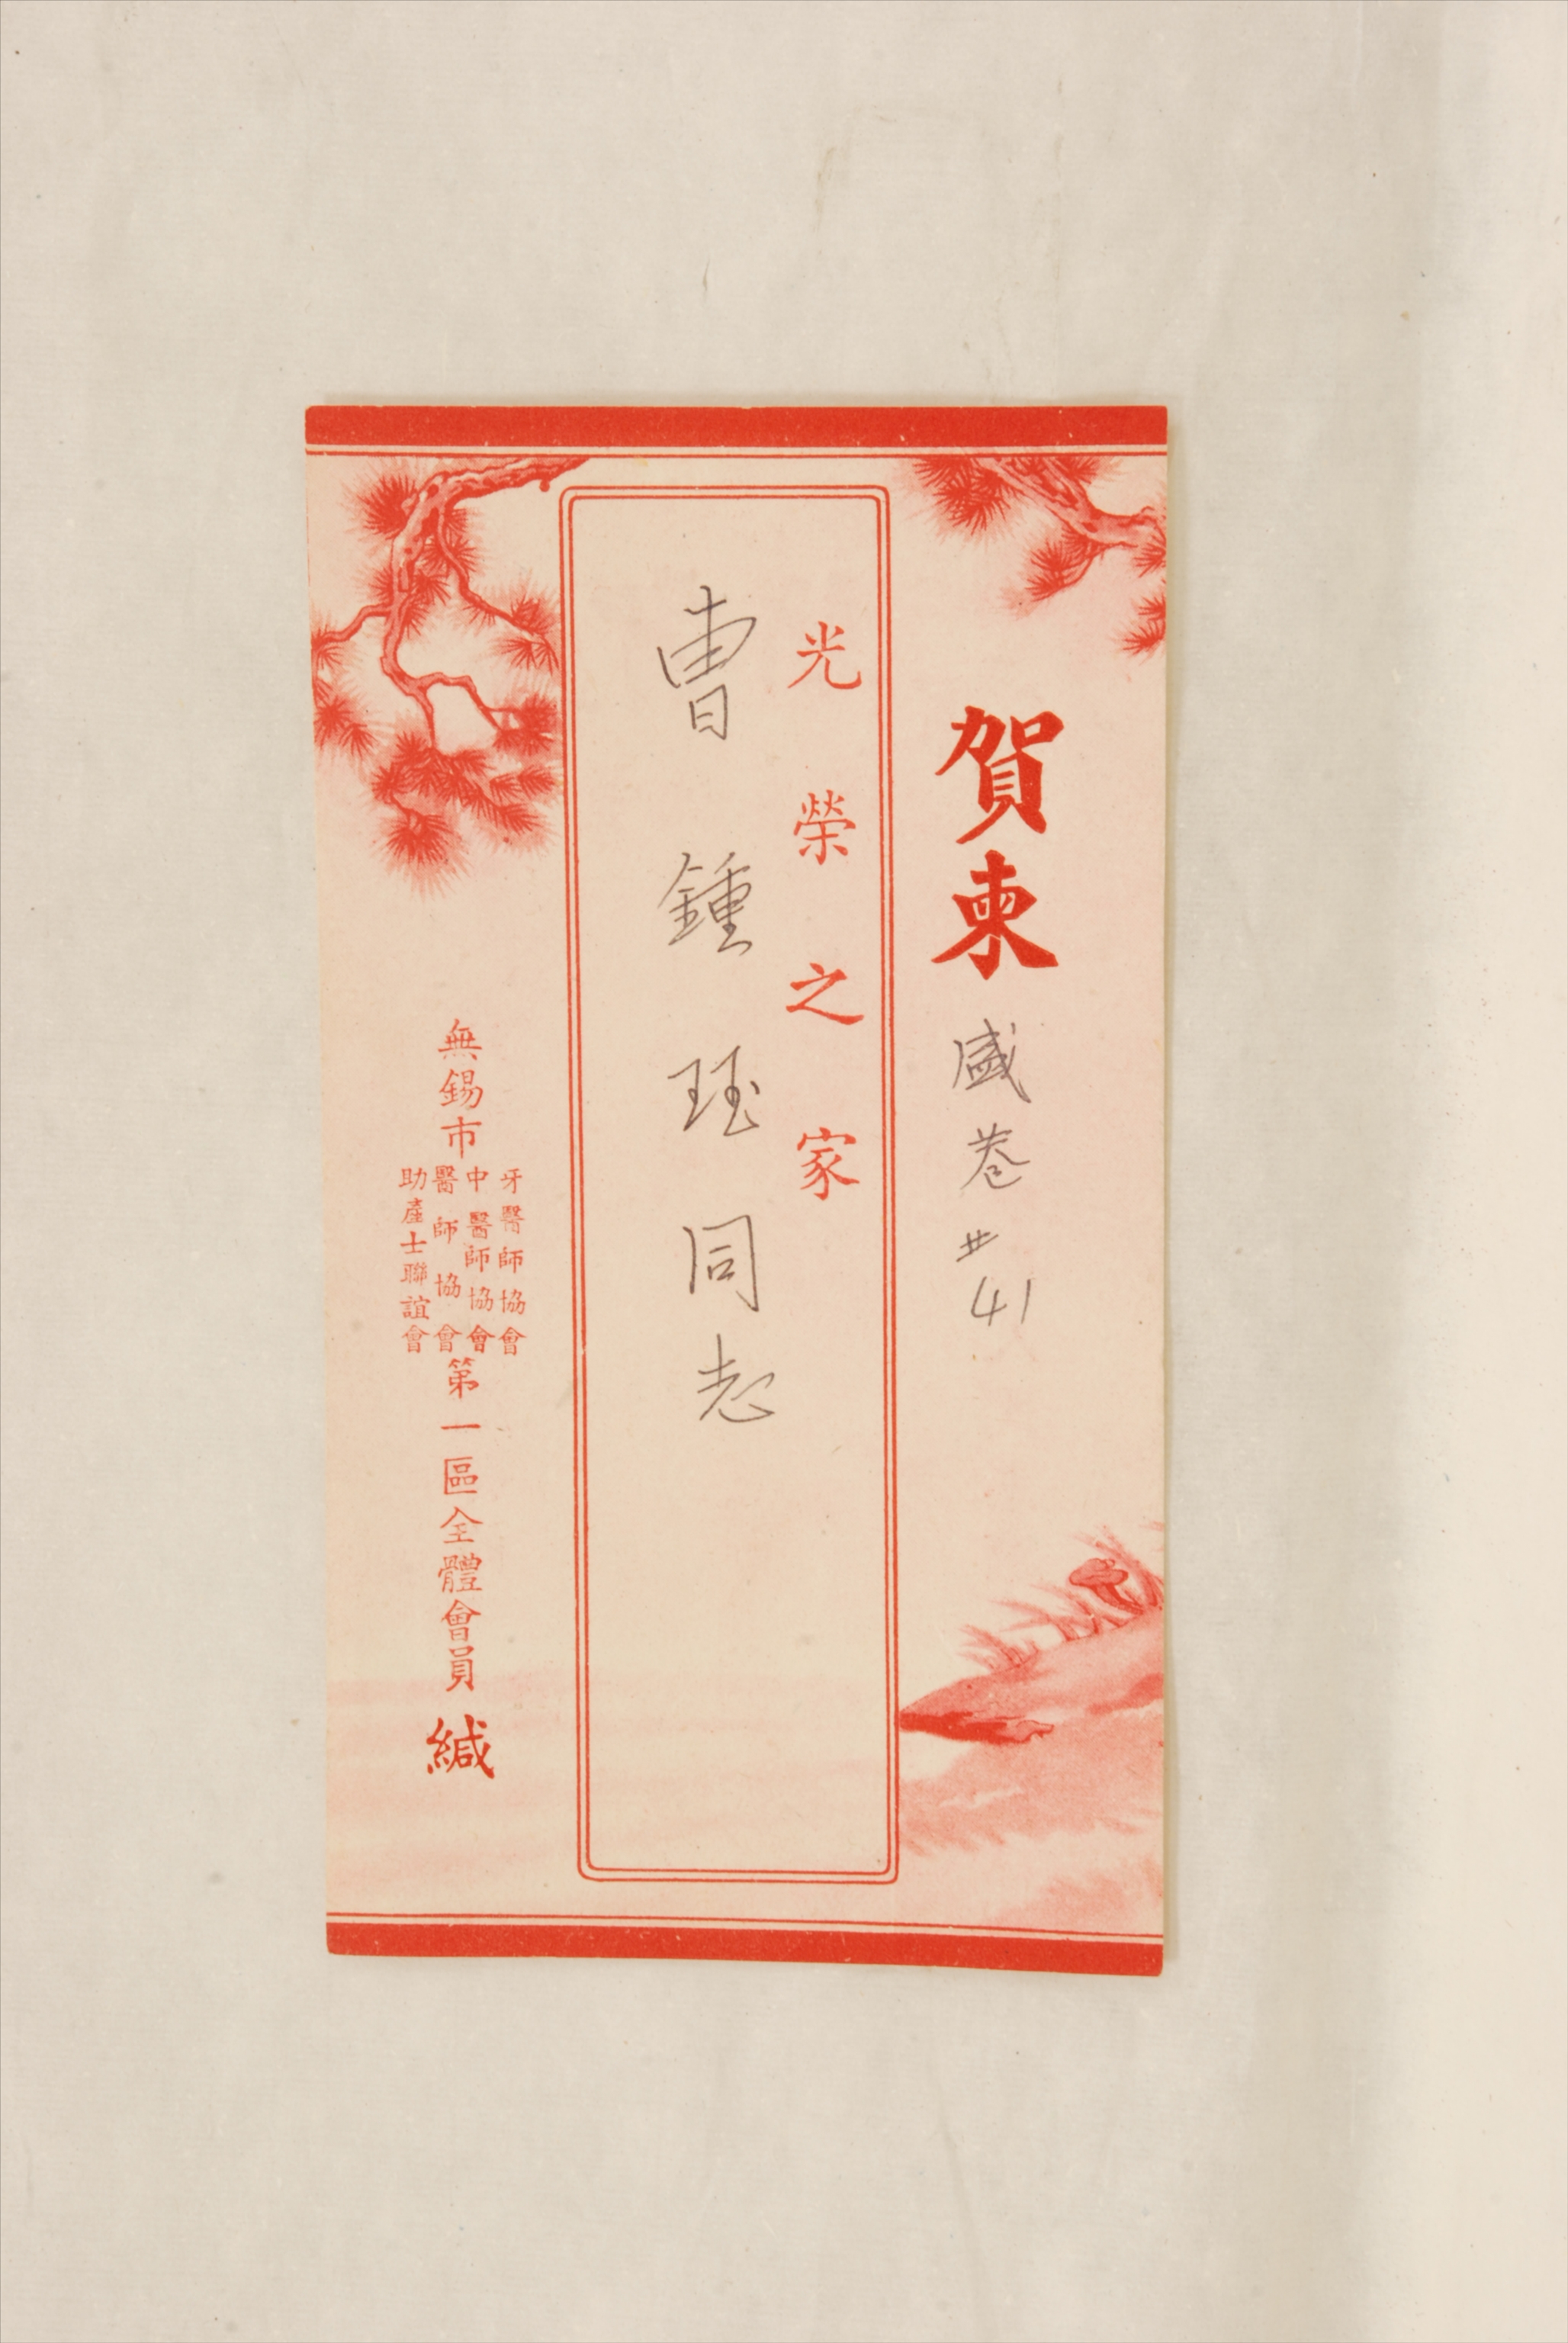 賀柬
盛巷#41
光榮之家
曹鍾珏同志
無錫市
牙醫師協會
中醫師協會
醫師協會
助產士聯誼會
第一區全體會員 緘